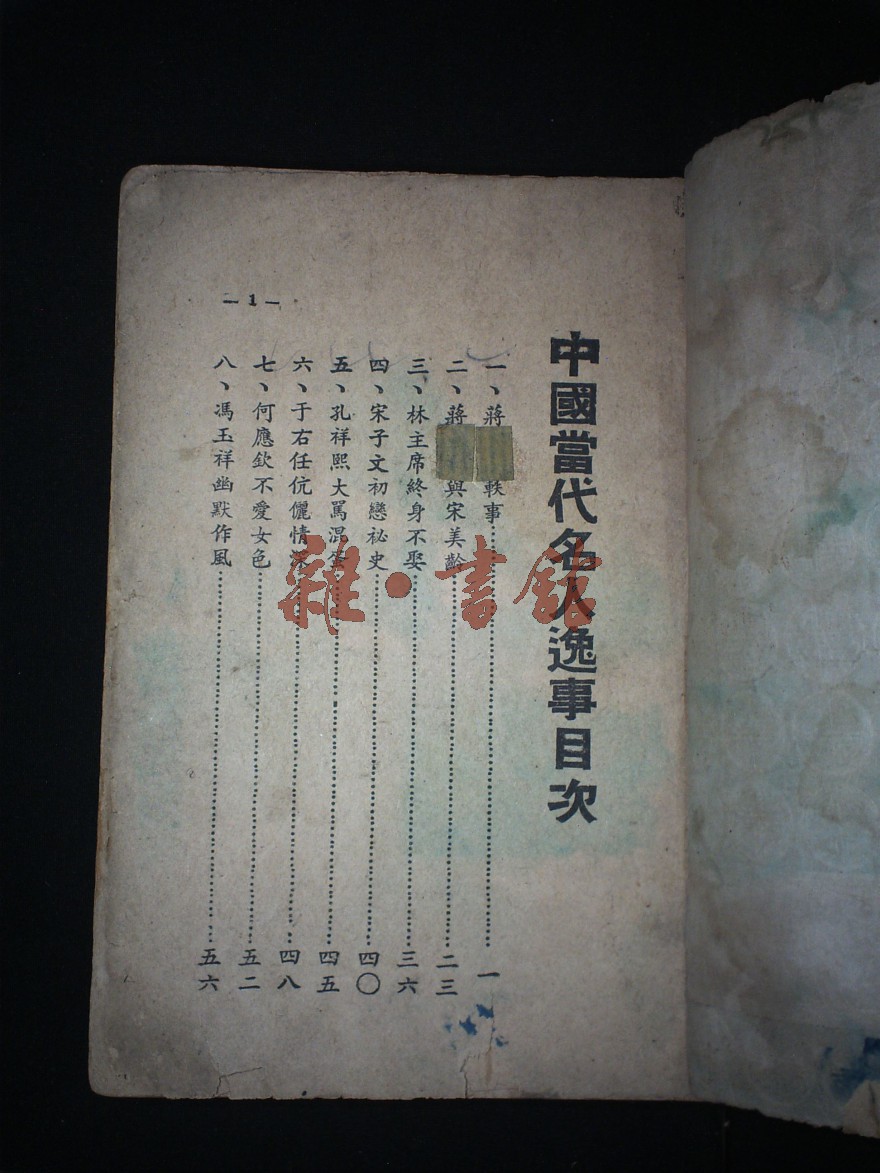 中國當代名人逸事目次
一、蔣軼事……一
二、蔣與宋美齡……二三
三、林主席終身不娶……三六
四、宋子文初戀祕史……四〇
五、孔祥熙大罵混蛋……四五
六、于右任伉儷情深……四八
七、何應欽不愛女色……五二
八、馮玉祥幽默作風……五六
— 1 —
雜·書館